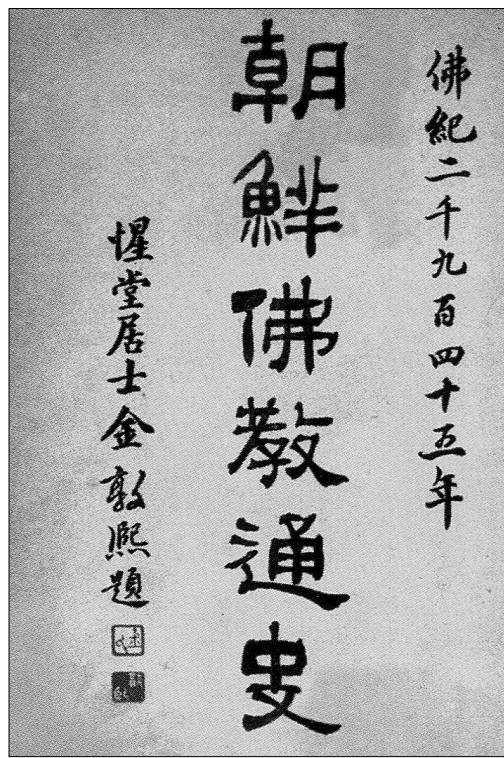 佛紀二千九百四十五年
朝鮮佛教通史
惺堂居士金敦熙題